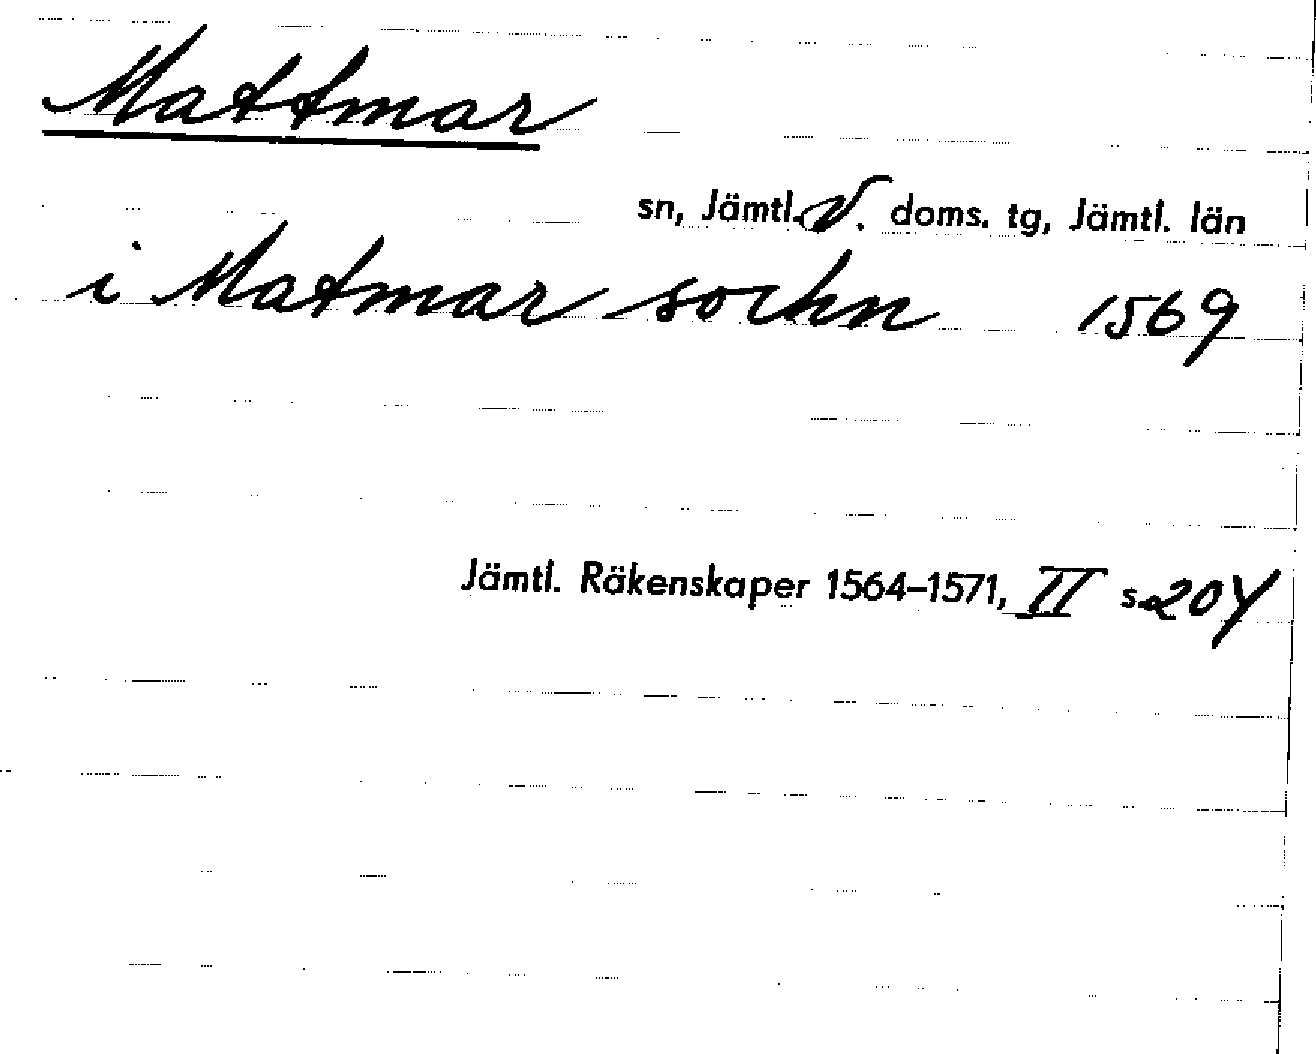 Mattmar
sn, Jämtl. V. doms. tg, Jämtl. län
i Matmar sochn 1569
Jämtl. Räkenskaper 1564–1571, II s. 204